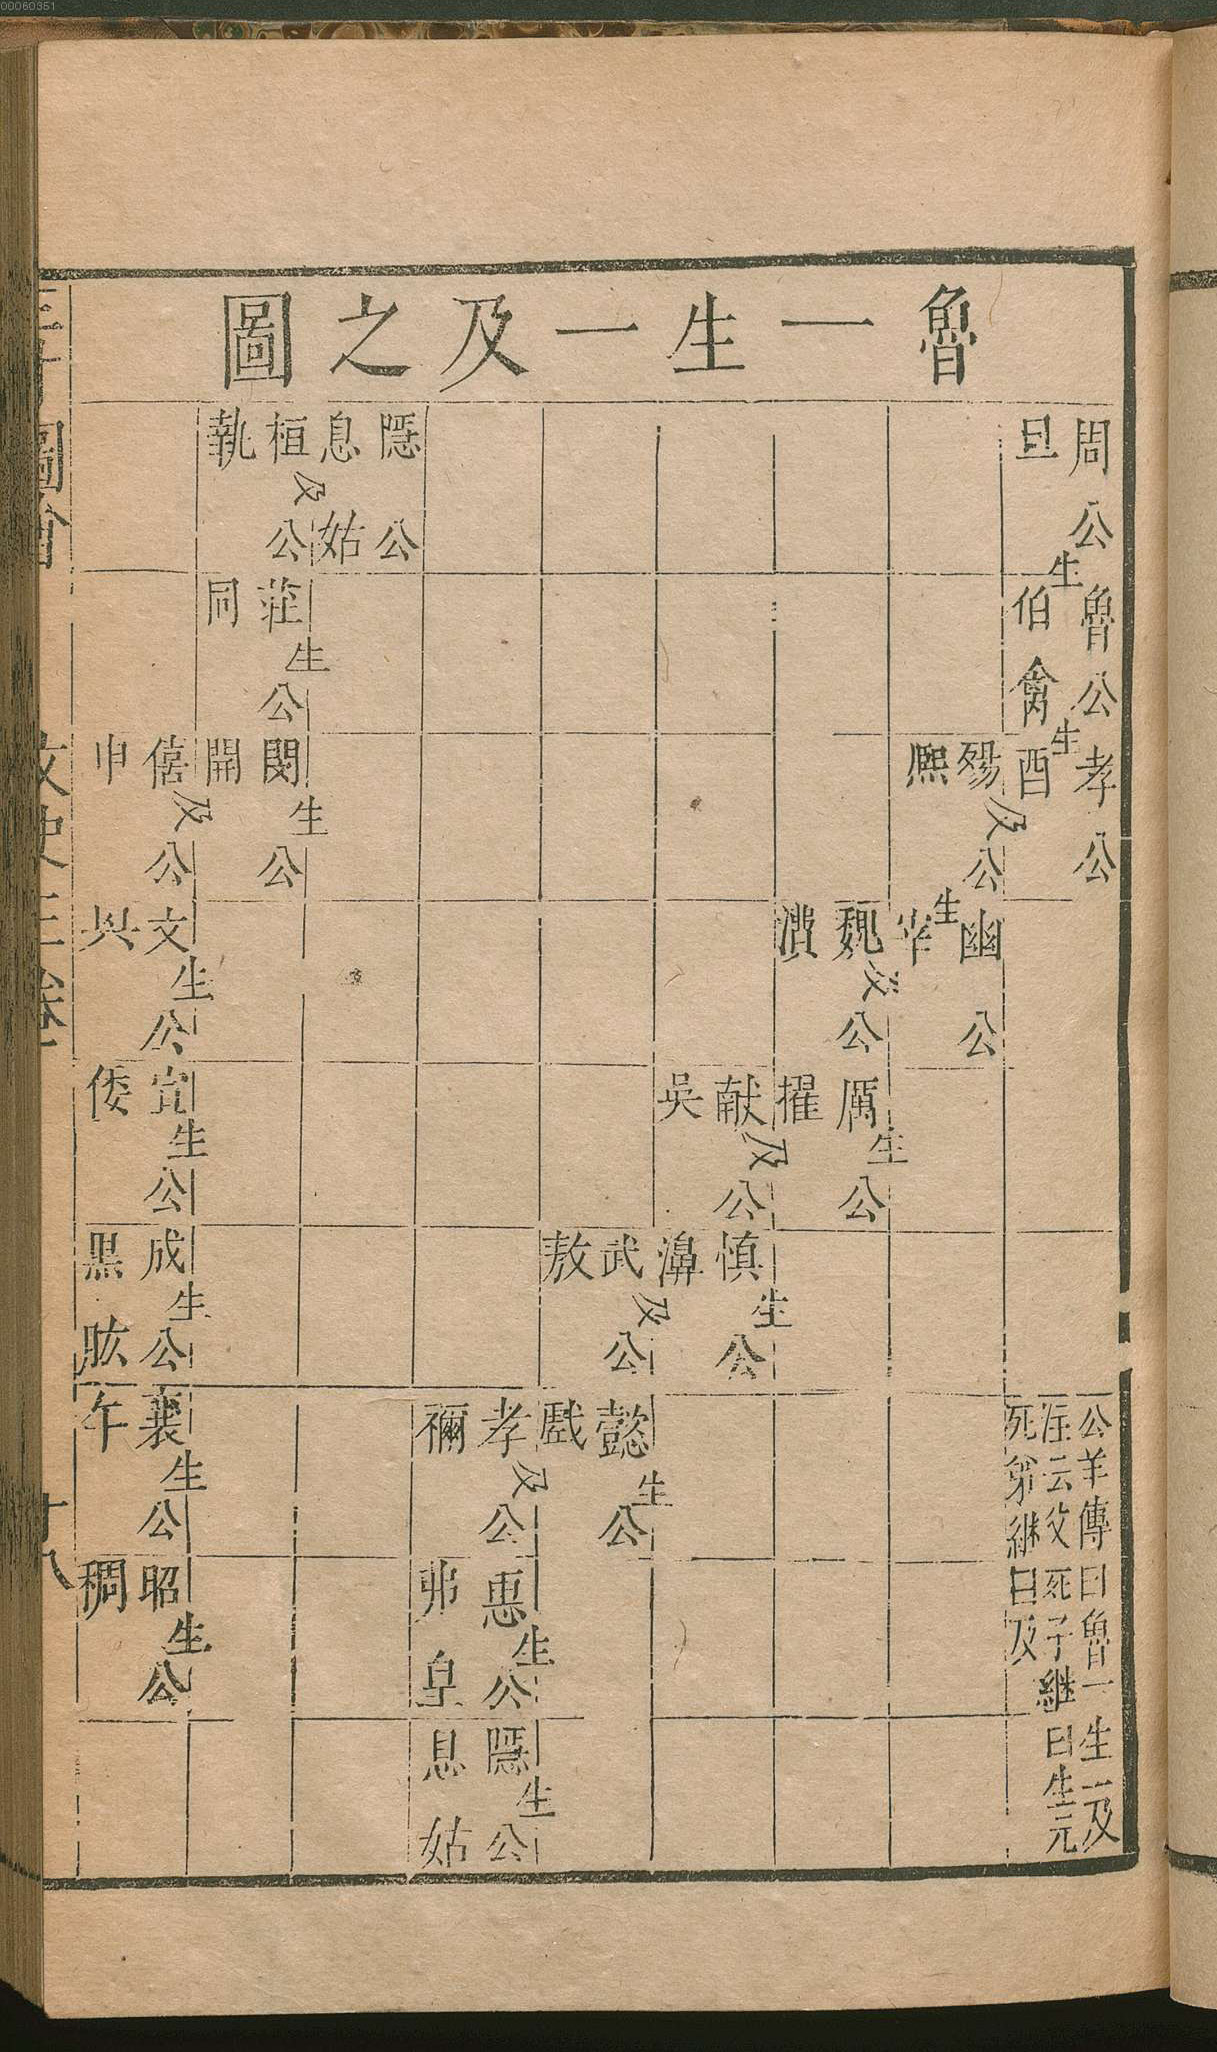 00060351
魯一生一及之圖
周公旦
生
魯公伯禽
生
孝公酉
公羊傳曰魯一生一及
注云父死子継曰生
死弟継曰及
煬公熙
及
幽公宰
生
魏公㵒
及
厲公擢
生
献公
及
慎公濞
生
武公敖
及
懿公戲
生
孝公
及
惠公弗皇
生
隱公息姑
生
隱公息姑
桓公執
及
莊公同
生
閔公開
生
僖公申
及
文公
生
宣公倭
生
成公黒肱
生
襄公午
生
昭公稠
生
三才圖會